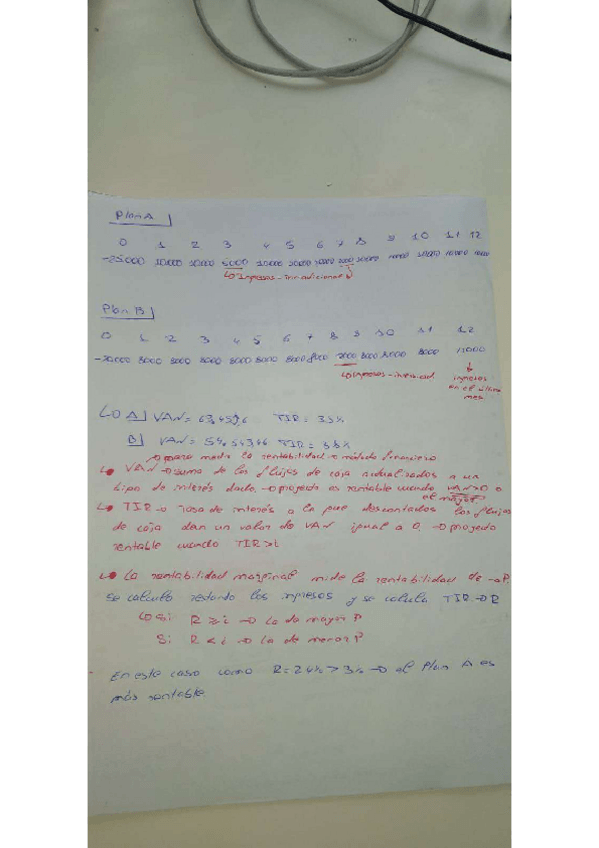 Plan A
0 1 2 3 4 5 6 7 8 9 10 11 12
-25000 10000 10000 5000 10000 10000 10000 10000 10000 10000 10000 10000
↳ Ingresos - inv. adicional
Plan B
0 1 2 3 4 5 6 7 8 9 10 11 12
-20000 8000 8000 8000 8000 8000 8000 8000 8000 8000 8000 13000
↳ Ingresos - inv. adicional ingresos
en el último
mes
↳ A) VAN = TIR = 35%
B) VAN = TIR = 38%
para medir la rentabilidad → método financiero
↳ VAN → suma de los flujos de caja actualizados a un
tipo de interés dado, → proyecto es rentable cuando VAN>0 o
el mayor
↳ TIR → tasa de interés a la que descontados los flujos
de caja dan un valor de VAN igual a 0, → proyecto
rentable cuando TIR>i
↳ La rentabilidad marginal mide la rentabilidad de
se calcula restando los ingresos y se calcula TIR → R
↳ Si R ≥ i → la de mayor P
Si R < i → la de menor P
- En este caso como R = 24% > 3% → el Plan A es
más rentable